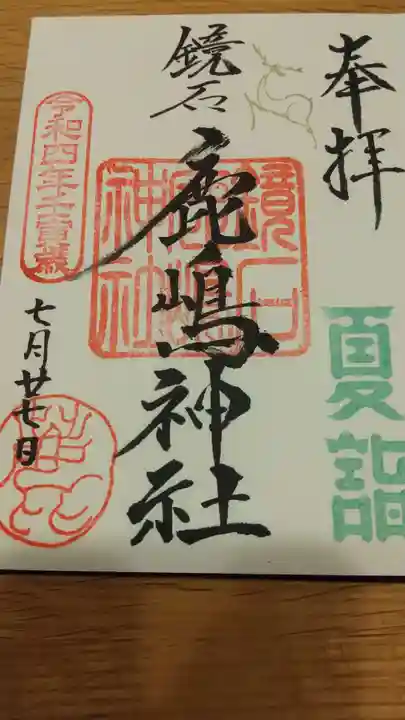 奉拝
夏詣
鏡石
鹿嶋神社
鏡石鹿嶋神社
令和四年壬寅歳
七月廿七日